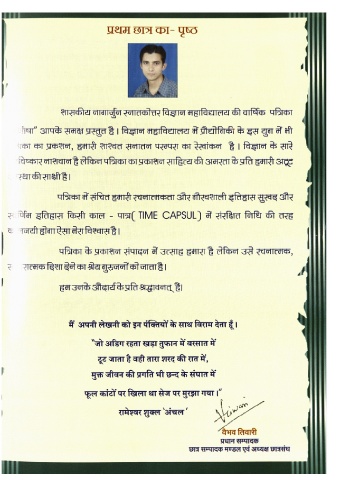 प्रथम छात्र का- पृष्ठ
शासकीय नागार्जुन स्नातकोत्तर विज्ञान महाविद्यालय की वार्षिक पत्रिका
आपके समक्ष प्रस्तुत है। विज्ञान महाविद्यालय में प्रौद्योगिकी के इस युग में भी
का प्रकशन, हमारी शाश्वत सनातन परम्परा का रेखांकन है। विज्ञान के सारे
नाशवान है लेकिन पत्रिका का प्रकाशन साहित्य की अमरता के प्रति हमारी अटूट
की साक्षी है।
पत्रिका में संचित हमारी रचनात्मकता और गौरवशाली इतिहास सुखद और
इतिहास किसी काल - पात्र( TIME CAPSUL) में संरक्षित निधि की तरह
होगा ऐसा मेरा विश्वास है।
पत्रिका के प्रकाशन संपादन में उत्साह हमारा है लेकिन उसे रचनात्मक,
दिशा देने का श्रेय गुरुजनों को जाता है।
हम उनके औदार्य के प्रति श्रद्धावनत् हैं।
मैं अपनी लेखनी को इन पंक्तियों के साथ विराम देता हूँ।
"जो अडिग रहता खड़ा तुफान में बरसात में
टूट जाता है वही तारा शरद की रात में,
मुक्त जीवन की प्रगति भी छन्द के संघात में
फूल कांटों पर खिला था सेज पर मुरझा गया।"
रामेश्वर शुक्ल 'अंचल'
वैभव तिवारी
प्रधान सम्पादक
छात्र सम्पादक मण्डल एवं अध्यक्ष छात्रसंघ